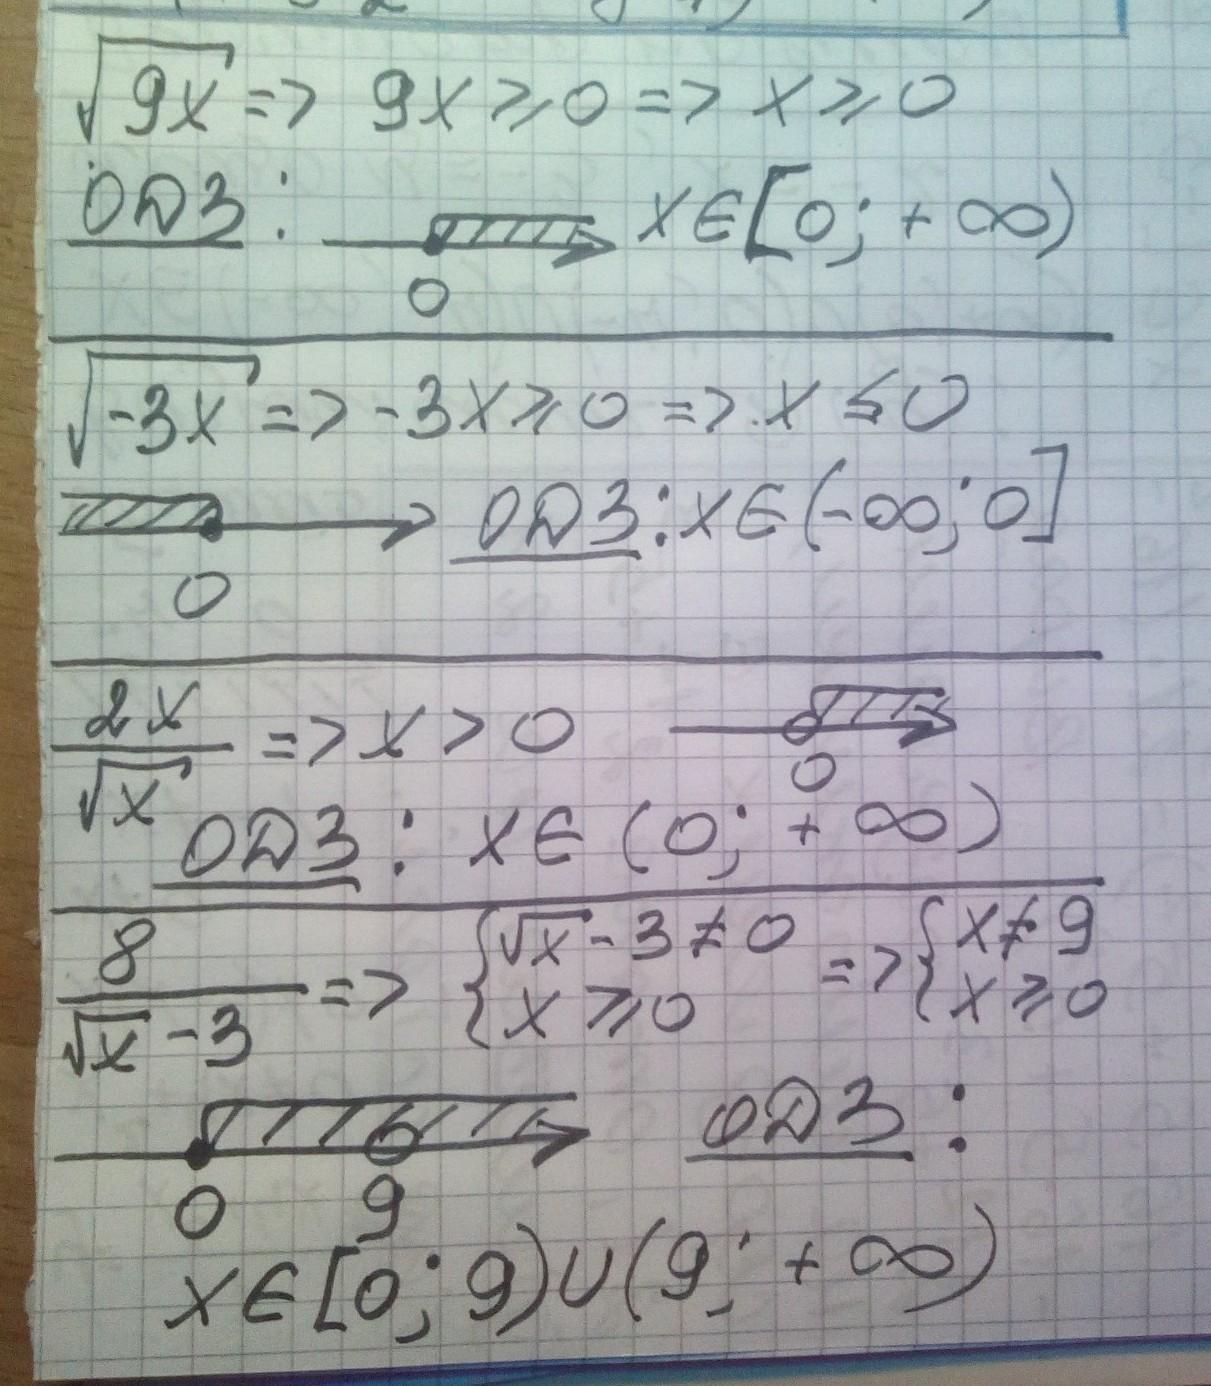 √9x => 9x ⩾ 0 => x ⩾ 0
ОДЗ: x∈[0; +∞)
0
√-3x => -3x ⩾ 0 => x ≤ 0
ОДЗ: x∈(-∞; 0]
0
2x/√x => x > 0
0
ОДЗ: x∈(0; +∞)
8/(√x - 3) => {√x - 3 ≠ 0 => {x ≠ 9
{x ⩾ 0 {x ⩾ 0
ОДЗ:
0 9
x∈[0; 9)∪(9; +∞)